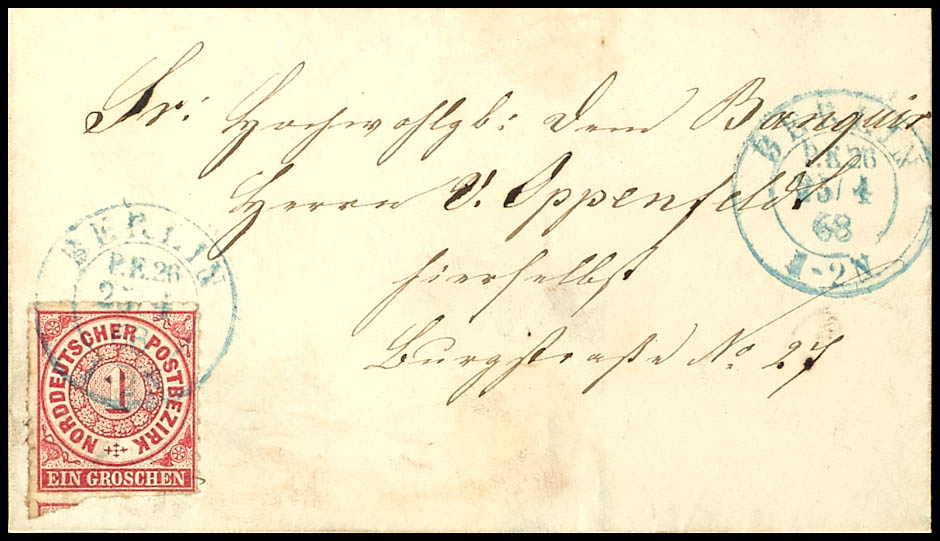 Sr: Hochwohlgb: dem Banquir
Herrn v. Oppenfeldt
hierselbst
Burgstraße No 27
BERLIN
P.E.26
25/4
68
1-2N
BERLIN
P.E.26
NORDDEUTSCHER POSTBEZIRK
1
EIN GROSCHEN